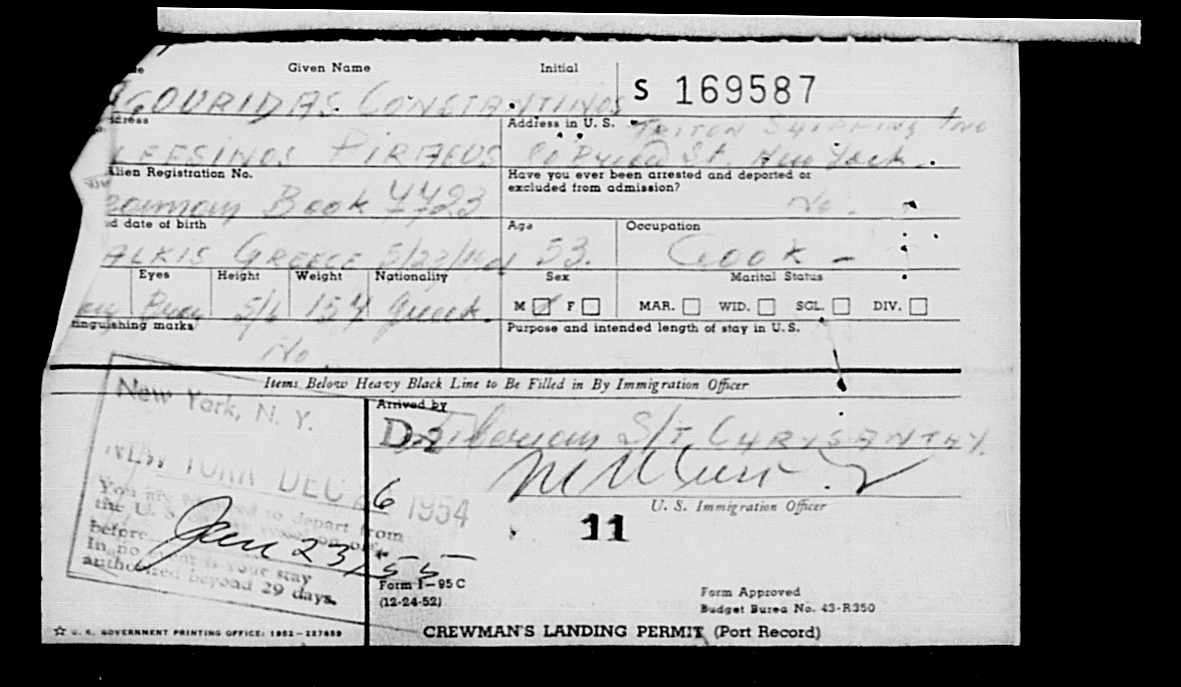 Given Name Initial
S 169587
GOURIDAS. CONSTANTINOS
Address in U. S. TRITON SHIPPING INC
PIRAEUS St. New York.
Alien Registration No. Have you ever been arrested and deported or
excluded from admission?
Book 4423 No.
date of birth Age Occupation
ALKIS GREECE 53. Cook
Eyes Height Weight Nationality Sex Marital Status
Brow 5/6 154 Greek. M F MAR. WID. SGL. DIV.
tinguishing marks Purpose and intended length of stay in U. S.
No
Items Below Heavy Black Line to Be Filled in By Immigration Officer
New York, N. Y. Arrived by
D-2 Liberian S/T, CHRYSANTHY.
NEW YORK DEC 26 1954
U. S. Immigration Officer
You are to depart from
the U. S. on
before Jan 23/55
In no your stay
authorized beyond 29 days.
11
Form I-95 C
(12-24-52)
Form Approved
Budget Bureau No. 43-R350
☆ U. S. GOVERNMENT PRINTING OFFICE: 1952
CREWMAN'S LANDING PERMIT (Port Record)